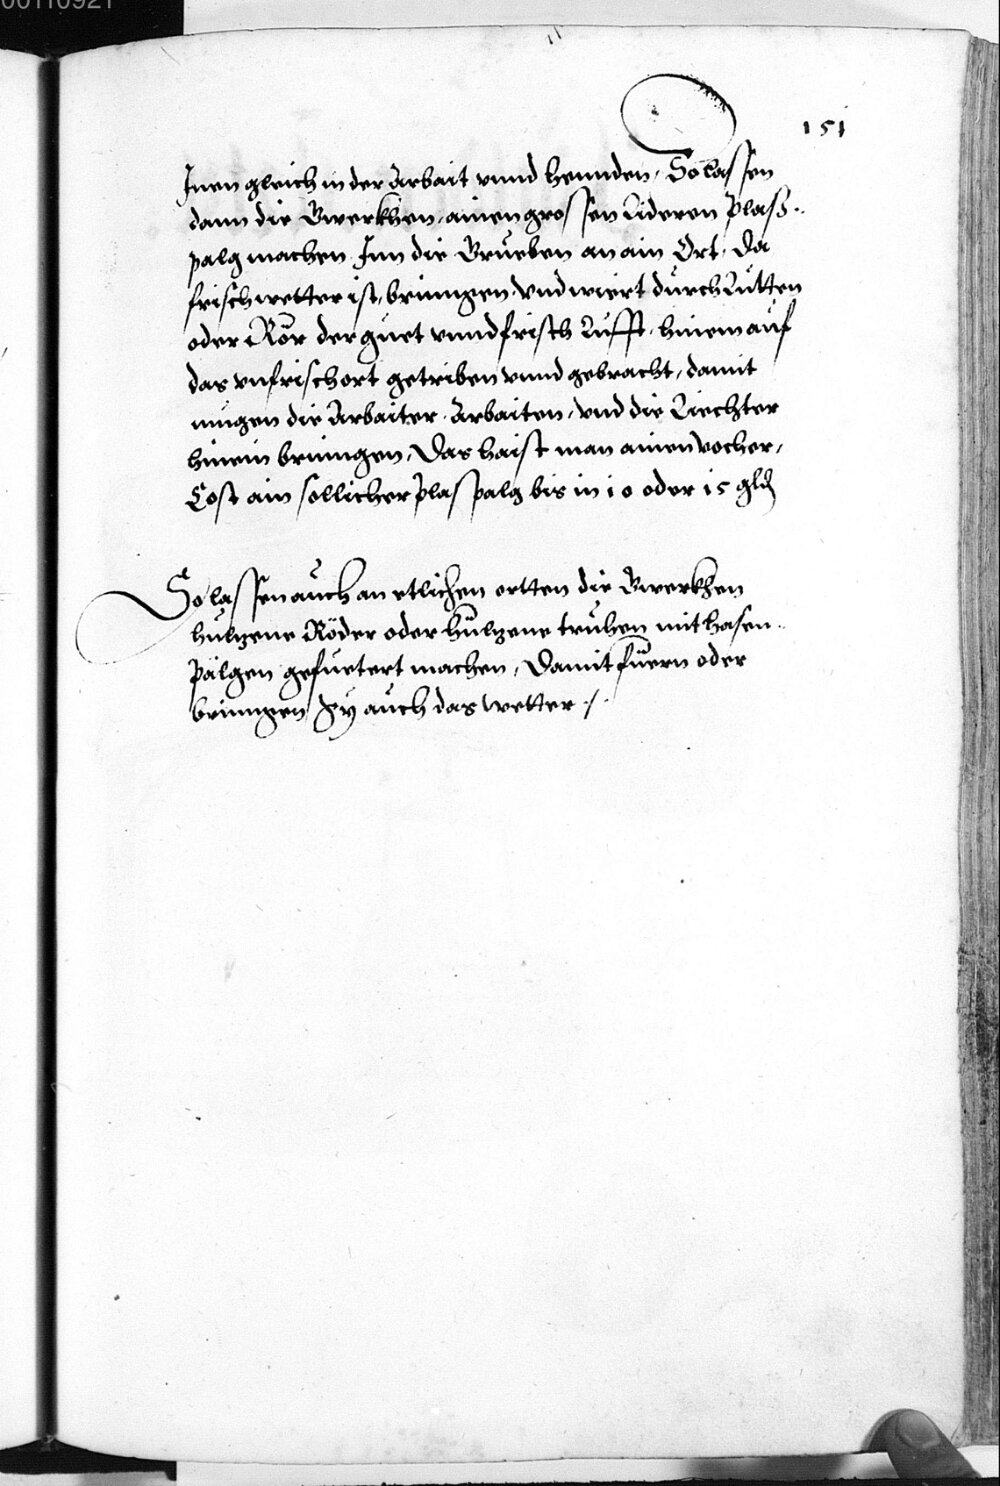 00110921
151
Inen gleich in der Arbait vnnd hennden, So lassen
dann die Gwerkhen, ainen grossen Lideren Plaß-
palg machen. Inn die Grueben an ain Ort, da
frisch wetter ist, bringen. Vnd wiert durch Lutten
oder Rör der guet vnnd frisch Lufft, hinein auf
das vnfrisch ort getriben vnnd gebracht, damit
mügen die Arbaiter Arbaiten, vnd die Liechter
hinein bringen, Das haist man ainen vocher,
Cost ain sollicher Plaspalg bis in 10 oder 15 gld
So lassen auch an etlichen ortten die Gwerkhen
hulzene Röder oder hulzene truhen mit hasen-
Pälgen gefuetert machen, Damit fuern oder
bringen sy auch das wetter ./.